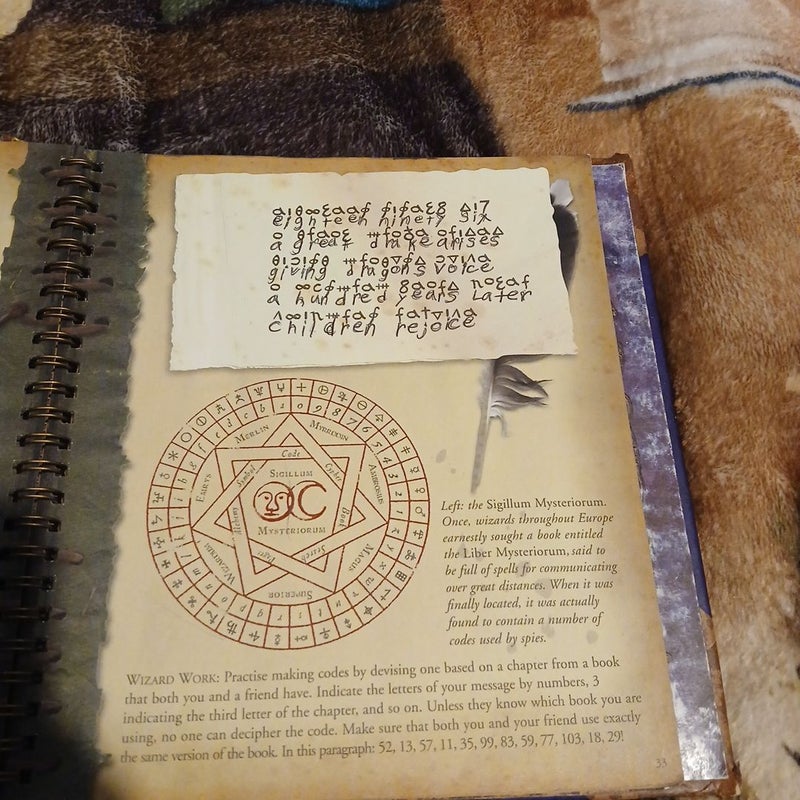 eighteen ninety six
a great drake arises
giving dragons voice
a hundred years later
children rejoice
MERLIN
MYRDDIN
AMBROSIUS
MAGUS
SUPERIOR
WIZARDTEN
EMRYS
Code
Cypher
Book
Secret
Alchemy
Symbol
SIGILLUM
MYSTERIORUM
Left: the Sigillum Mysteriorum.
Once, wizards throughout Europe
earnestly sought a book entitled
the Liber Mysteriorum, said to
be full of spells for communicating
over great distances. When it was
finally located, it was actually
found to contain a number of
codes used by spies.
WIZARD WORK: Practise making codes by devising one based on a chapter from a book
that both you and a friend have. Indicate the letters of your message by numbers, 3
indicating the third letter of the chapter, and so on. Unless they know which book you are
using, no one can decipher the code. Make sure that both you and your friend use exactly
the same version of the book. In this paragraph: 52, 13, 57, 11, 35, 99, 83, 59, 77, 103, 18, 29!
33